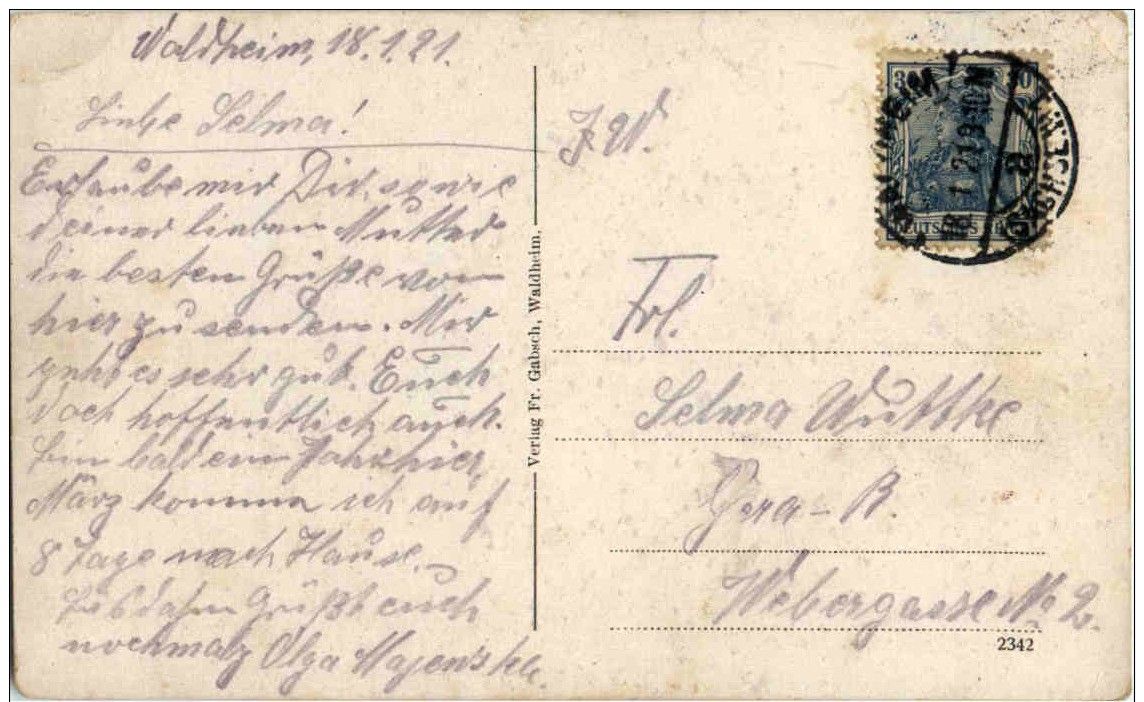 Waldheim, 18.1.21.
Liebe Selma!
Erlaube mir Dir, sowie
deiner lieben Mutter
die besten Grüße von
hier zu senden. Mir
geht es sehr gut. Euch
doch hoffentlich auch.
bin bald ein Jahr hier,
März komme ich auf
8 Tage nach Hause.
Grüßt euch
nochmalz Olga
Verlag Fr. Gabsch, Waldheim.
30
WALDHEIM
18.1.21.9-10
DEUTSCHES REICH
Frl.
Selma Wuttke
Gera-R.
Webergasse No 2.
2342